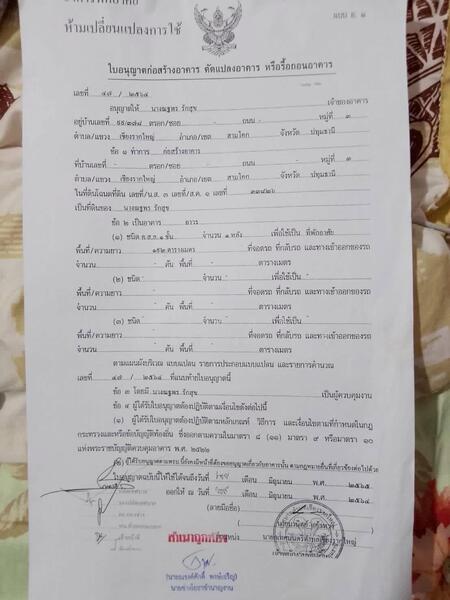 ห้ามเปลี่ยนแปลงการใช้
แบบ อ. ๑
ใบอนุญาตก่อสร้างอาคาร ดัดแปลงอาคาร หรือรื้อถอนอาคาร
เลขที่ ๔๗ / ๒๕๖๔
อนุญาตให้ นางณฐพร รักสุข เจ้าของอาคาร
อยู่บ้านเลขที่ ตรอก/ซอย - ถนน - หมู่ที่ ๓
ตำบล/แขวง เชียงรากใหญ่ อำเภอ/เขต สามโคก จังหวัด ปทุมธานี
ข้อ ๑ ทำการ ก่อสร้างอาคาร
ที่บ้านเลขที่ - ตรอก/ซอย - ถนน - หมู่ที่ ๓
ตำบล/แขวง เชียงรากใหญ่ อำเภอ/เขต สามโคก จังหวัด ปทุมธานี
ในที่ดินโฉนดที่ดิน เลขที่/น.ส. ๓ เลขที่/ส.ค. ๑ เลขที่
เป็นที่ดินของ นางณฐพร รักสุข
ข้อ ๒ เป็นอาคาร ถาวร
(๑) ชนิด ค.ส.ล. ๑ ชั้น จำนวน ๑ หลัง เพื่อใช้เป็น ที่พักอาศัย
พื้นที่/ความยาว ตารางเมตร ที่จอดรถ ที่กลับรถ และทางเข้าออกของรถ
จำนวน - คัน พื้นที่ - ตารางเมตร
(๒) ชนิด - จำนวน - เพื่อใช้เป็น -
พื้นที่/ความยาว - ที่จอดรถ ที่กลับรถ และทางเข้าออกของรถ
จำนวน - คัน พื้นที่ - ตารางเมตร
(๓) ชนิด - จำนวน - เพื่อใช้เป็น -
พื้นที่/ความยาว - ที่จอดรถ ที่กลับรถ และทางเข้าออกของรถ
จำนวน - คัน พื้นที่ - ตารางเมตร
ตามแผนผังบริเวณ แบบแปลน รายการประกอบแบบแปลน และรายการคำนวณ
เลขที่ ๔๗ / ๒๕๖๔ ที่แนบท้ายใบอนุญาตนี้
ข้อ ๓ โดยมี นางณฐพร รักสุข เป็นผู้ควบคุมงาน
ข้อ ๔ ผู้ได้รับใบอนุญาตต้องปฏิบัติตามเงื่อนไขดังต่อไปนี้
(๑) ผู้ได้รับใบอนุญาตต้องปฏิบัติตามหลักเกณฑ์ วิธีการ และเงื่อนไขตามที่กำหนดในกฎ
กระทรวงและหรือข้อบัญญัติท้องถิ่น ซึ่งออกตามความในมาตรา ๘ (๑๑) มาตรา ๙ หรือมาตรา ๑๐
แห่งพระราชบัญญัติควบคุมอาคาร พ.ศ. ๒๕๒๒
ใบอนุญาตฉบับนี้ให้ใช้ได้จนถึงวันที่ เดือน มิถุนายน พ.ศ. ๒๕๖๕
ออกให้ ณ วันที่ เดือน มิถุนายน พ.ศ. ๒๕๖๔
(ลายมือชื่อ)
สำเนาถูกต้อง
ตำแหน่ง
นายช่างโยธาชำนาญงาน